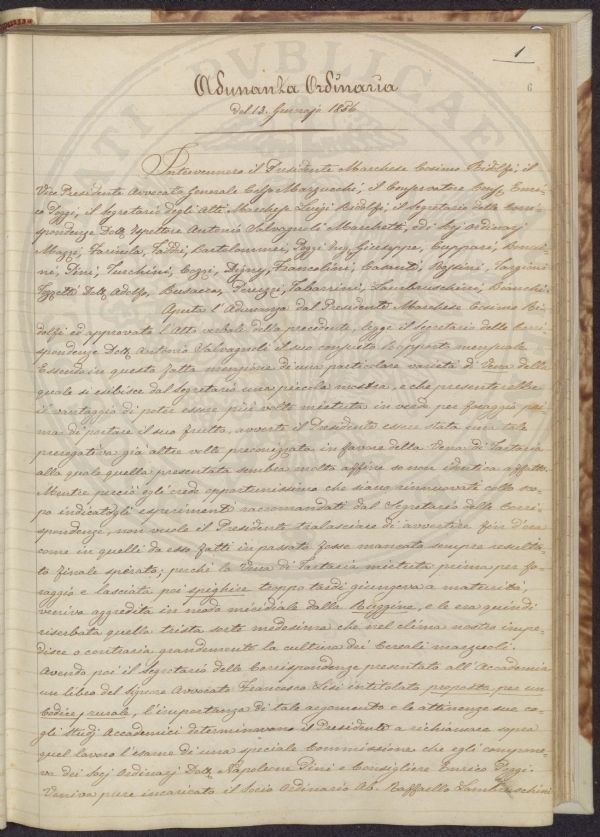 1
6
Adunanza Ordinaria
del 13. Gennajo 1856
Intervennero il Presidente Marchese Cosimo Ridolfi; il
Vice Presidente Avvocato Generale Celso Marzucchi; il Conservatore Conse. Enri-
co Poggi; il Segretario degli Atti Marchese Luigi Ridolfi; il Segretario delle Corri-
spondenze Dott. Ispettore Antonio Salvagnoli Marchetti, ed i Socj Ordinarj
Mazzi, Farinola, Taddei, Bartolommei, Poggi Ing. Giuseppe, Cuppari, Bonai-
ni, Pini, Turchini, Cozzi, Digny, Francolini, Casanti, Rossini, Targioni
Tozzetti Dott. Adolfo, Busacca, Peruzzi, Tabarrini, Lambruschini, Bianchi.
Aperta l'Adunanza dal Presidente Marchese Cosimo Ri-
dolfi ed approvato l'Atto verbale della precedente, legge il Segretario delle Corri-
spondenze Dott. Antonio Salvagnoli il suo consueto rapporto mensuale.
Essendo in questo fatta menzione di una particolare varietà di Vena della
quale si esibisce dal Segretario una piccola mostra, e che presenterebbe
il vantaggio di poter essere più volte mietuta in verde per foraggio pri-
ma di portare il suo frutto, avverte il Presidente essere stata una tale
prerogativa già altre volte preconizzata in favore della Vena di Tartaria
alla quale quella presentata sembra molto affine se non identica affatto.
Mentre perciò egli crede opportunissimo che siano rinnuovati collo sco-
po indicato gli esperimenti raccomandati dal Segretario delle Corri-
spondenze, non vuole il Presidente tralasciare di avvertire fin d'ora
come in quelli da esso fatti in passato fosse mancato sempre resulta-
to finale sperato; perché la Vena di Tartaria mietuta prima per fo-
raggio e lasciata poi spighire troppo tardi giungeva a maturità
veniva aggredita in modo micidiale dalla Ruggine, e le era quindi
riserbata quella trista sorte medesima che nel clima nostro impe-
disce o contraria grandemente la cultura dei Cereali marzuoli.
Avendo poi il Segretario delle Corrispondenze presentato all'Accademia
un libro del signore Avvocato Francesco Lisi intitolato proposta per un
Codice rurale, l'importanza di tale argomento e le attinenze sue co-
gli studj Accademici determinavano il Presidente a richiamare sopra
quel lavoro l'esame di una speciale Commissione che egli compone-
va dei Socj Ordinarj Dott. Napoleone Pini e Consigliere Enrico Poggi.
Veniva pure incaricato il Socio Ordinario Ab. Raffaello Lambruschini